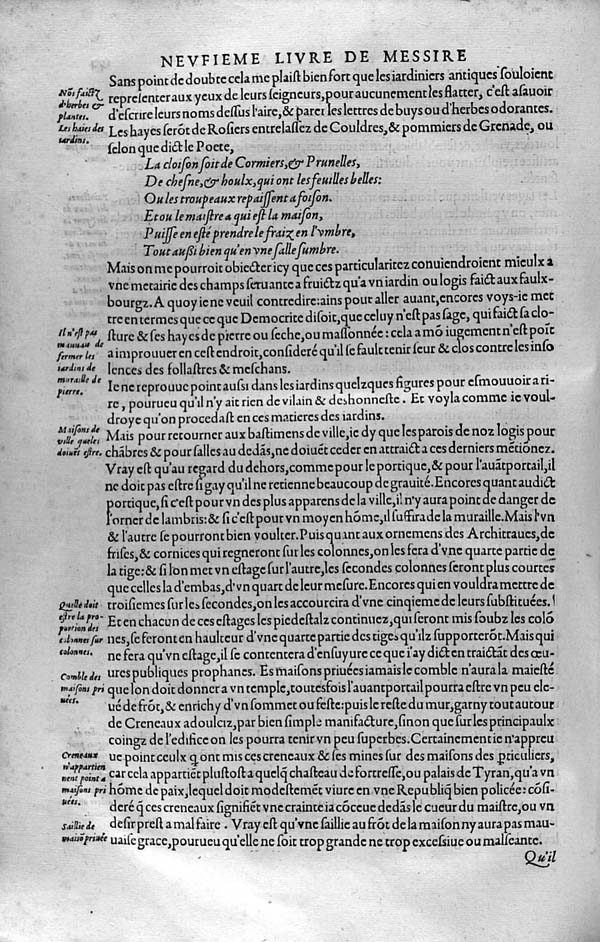 NEVFIEME LIVRE DE MESSIRE
Sans point de doubte cela me plaist bien fort que les iardiniers antiques souloient
representer aux yeux de leurs seigneurs, pour aucunement les flatter, c'est asauoir
d'escrire leurs noms dessus l'aire, & parer les lettres de buys ou d'herbes odorantes.
Les hayes serōt de Rosiers entrelassez de Couldres, & pommiers de Grenade, ou
selon que dict le Poete,
La cloison soit de Cormiers, & Prunelles,
De chesne, & houlx, qui ont les feuilles belles:
Ou les troupeaux repaissent a foison.
Et ou le maistre a qui est la maison,
Puisse en esté prendre le fraiz en l'vmbre,
Tout aussi bien qu'en vne salle sumbre.
Mais on me pourroit obiecter icy que ces particularitez conuiendroient mieulx a
vne metairie des champs seruante a fruictz qu'a vn iardin ou logis faict aux faulx-
bourgz. A quoy ie ne veuil contredire: ains pour aller auant, encores voys-ie met
tre en termes que ce que Democrite disoit, que celuy n'est pas sage, qui faict sa clo-
sture & ses hayes de pierre ou seche, ou massonnée: cela a mō iugement n'est poīt
a improuuer en cest endroit, consideré qu'il se fault tenir seur & clos contre les inso
lences des follastres & meschans.
Ie ne reprouue point aussi dans les iardins quelzques figures pour esmouuoir a ri-
re, pourueu qu'il n'y ait rien de vilain & deshonneste. Et voyla comme ie voul-
droye qu'on procedast en ces matieres des iardins.
Mais pour retourner aux bastimens de ville, ie dy que les parois de noz logis pour
chābres & pour salles au dedās, ne doiuēt ceder en attraict a ces derniers mētionez.
Vray est qu'au regard du dehors, comme pour le portique, & pour l'auātportail, il
ne doit pas estre si gay qu'il ne retienne beaucoup de grauité. Encores quant audict
portique, si c'est pour vn des plus apparens de la ville, il n'y aura point de danger de
l'orner de lambris: & si c'est pour vn moyen hōme, il suffira de la muraille. Mais l'vn
& l'autre se pourront bien voulter. Puis quant aux ornemens des Architraues, de
frises, & cornices qui regneront sur les colonnes, on les fera d'vne quarte partie de
la tige: & si lon met vn estage sur l'autre, les secondes colonnes seront plus courtes
que celles la d'embas, d'vn quart de leur mesure. Encores qui en vouldra mettre de
troisiemes sur les secondes, on les accourcira d'vne cinqieme de leurs substituées.
Et en chacun de ces estages les piedestalz continuez, qui seront mis soubz les colō
nes, se feront en haulteur d'vne quarte partie des tiges qu'ilz supporterōt. Mais qui
ne fera qu'vn estage, il se contentera d'ensuyure ce que i'ay dict en traictāt des œu-
ures publiques prophanes. Es maisons priuées iamais le comble n'aura la maiesté
que lon doit donner a vn temple, toutesfois l'auantportail pourra estre vn peu ele-
ué de frōt, & enrichy d'vn sommet ou feste: puis le reste du mur, garny tout autour
de Creneaux adoulciz, par bien simple manifacture, sinon que sur les principaulx
coingz de l'edifice on les pourra tenir vn peu superbes. Certainement ie n'appreu
ue point ceulx q̄ ont mis ces creneaux & ses mines sur des maisons des p̄ticuliers,
car cela appartiēt plustost a quelq̄ chasteau de fortresse, ou palais de Tyran, qu'a vn
hōme de paix, lequel doit modestemēt viure en vne Republiq̄ bien policée: cōsi-
deré q̄ ces creneaux signifiēt vne crainte ia cōceue dedās le cueur du maistre, ou vn
desir prest a mal faire. Vray est qu'vne saillie au frōt de la maison ny aura pas mau-
uaise grace, pourueu qu'elle ne soit trop grande ne trop excessiue ou malseante.
Qu'il
Nōs faictz
d'herbes &
plantes.
Les haies des
iardins.
Il n'est pas
mauuais de
fermer les
iardins de
muraille de
pierre.
Maisons de
ville queles
doiuēt estre.
Quelle doit
estre la pro-
portion des
colonnes sur
colonnes.
Comble des
maisons pri
uées.
Creneaux
n'appartien
nent point a
maisons pri
uées.
Saillie de
maisō priuée